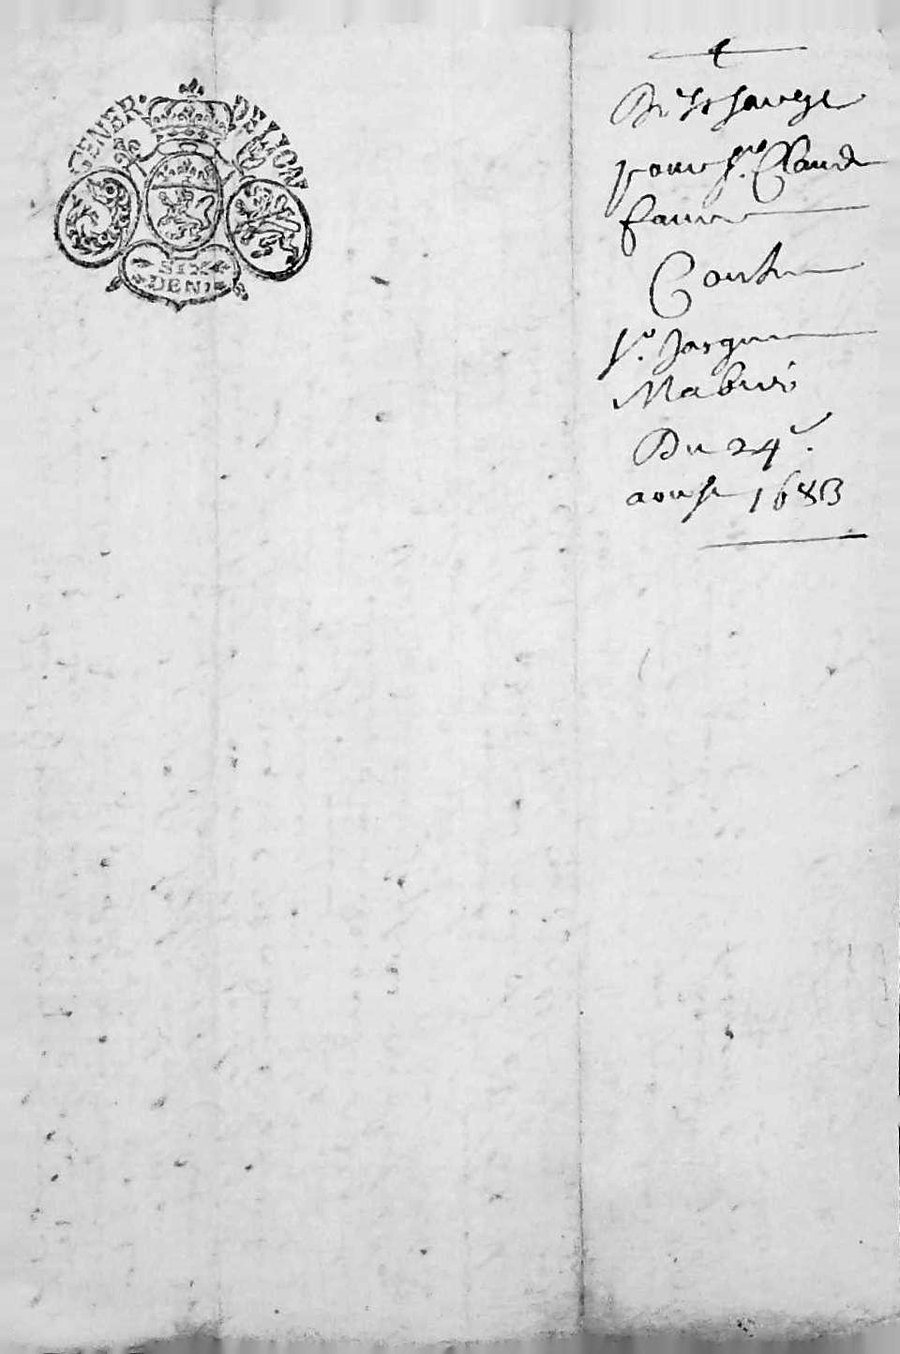 GENER. DE LYON
SIX
DEN.
Descharge
pour sr. Claude
faure
Contre
sr. Jacques
Mabiés
Du 24e.
aoust 1683